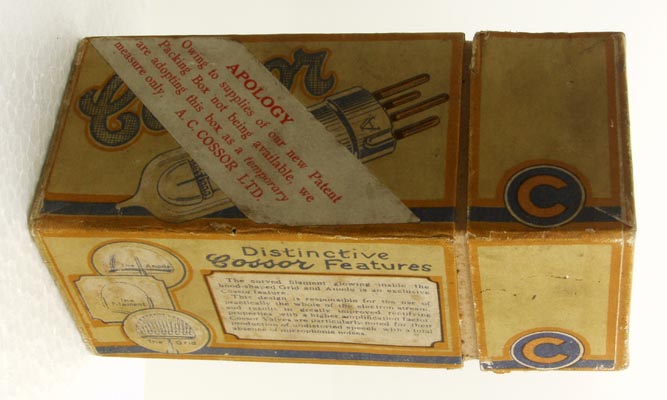 Cossor
APOLOGY
Owing to supplies of our new Patent
Packing Box not being available, we
are adopting this box as a temporary
measure only.
A. C. COSSOR LTD.
C
Distinctive
Cossor Features
The curved filament glowing inside the
hood-shaped Grid and Anode is an exclusive
Cossor feature.
This design is responsible for the use of
practically the whole of the electron stream
and results in greatly improved rectifying
properties with a higher amplification factor.
Cossor Valves are particularly noted for their
production of undistorted speech with a total
absence of microphonic noises.
The Anode
The Filament
The Grid
C